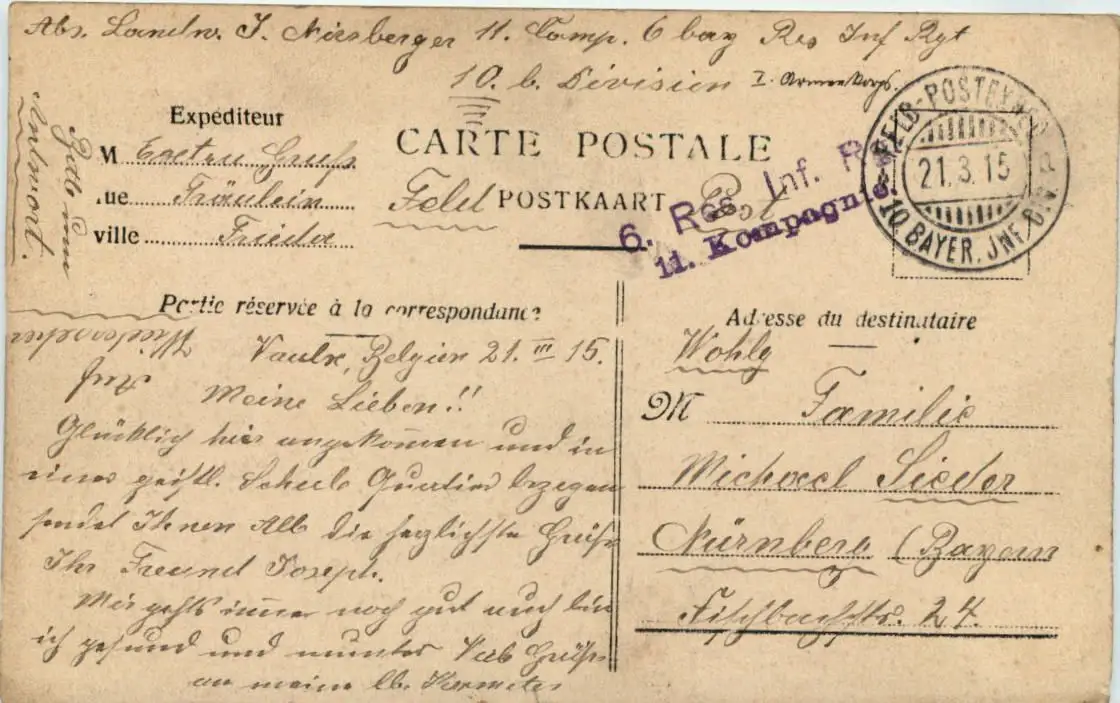 Abs. Landw. J. Niesberger 11. Comp. 6 bay Res Inf Rgt
10. b. Division I. Armeekorps.
Expéditeur
M Extra Gruß
rue Fräulein
ville Frieda
Bitte um
Antwort.
CARTE POSTALE
Feld POSTKAART Post
6. Res. Inf. R
11. Kompagnie.
FELD-POSTEXPED.
21.3.15
10. BAYER. INF. DIV.
Partie réservée à la correspondance
Auf
Wiedersehen
Vaulx, Belgien 21. III 15.
Meine Lieben!!
Glücklich hier angekommen und in
einer geistl. Schule Quartier bezogen
sendet Ihnen All die herzlichste Grüße
Ihr Freund Joseph.
Mir gehts immer noch gut auch bin
ich gesund und munter Viele Grüße
an meine lb.
Adresse du destinataire
Wohlg
M Familie
Michael Sieder
Nürnberg (Bayern
Fischbachstr. 24.